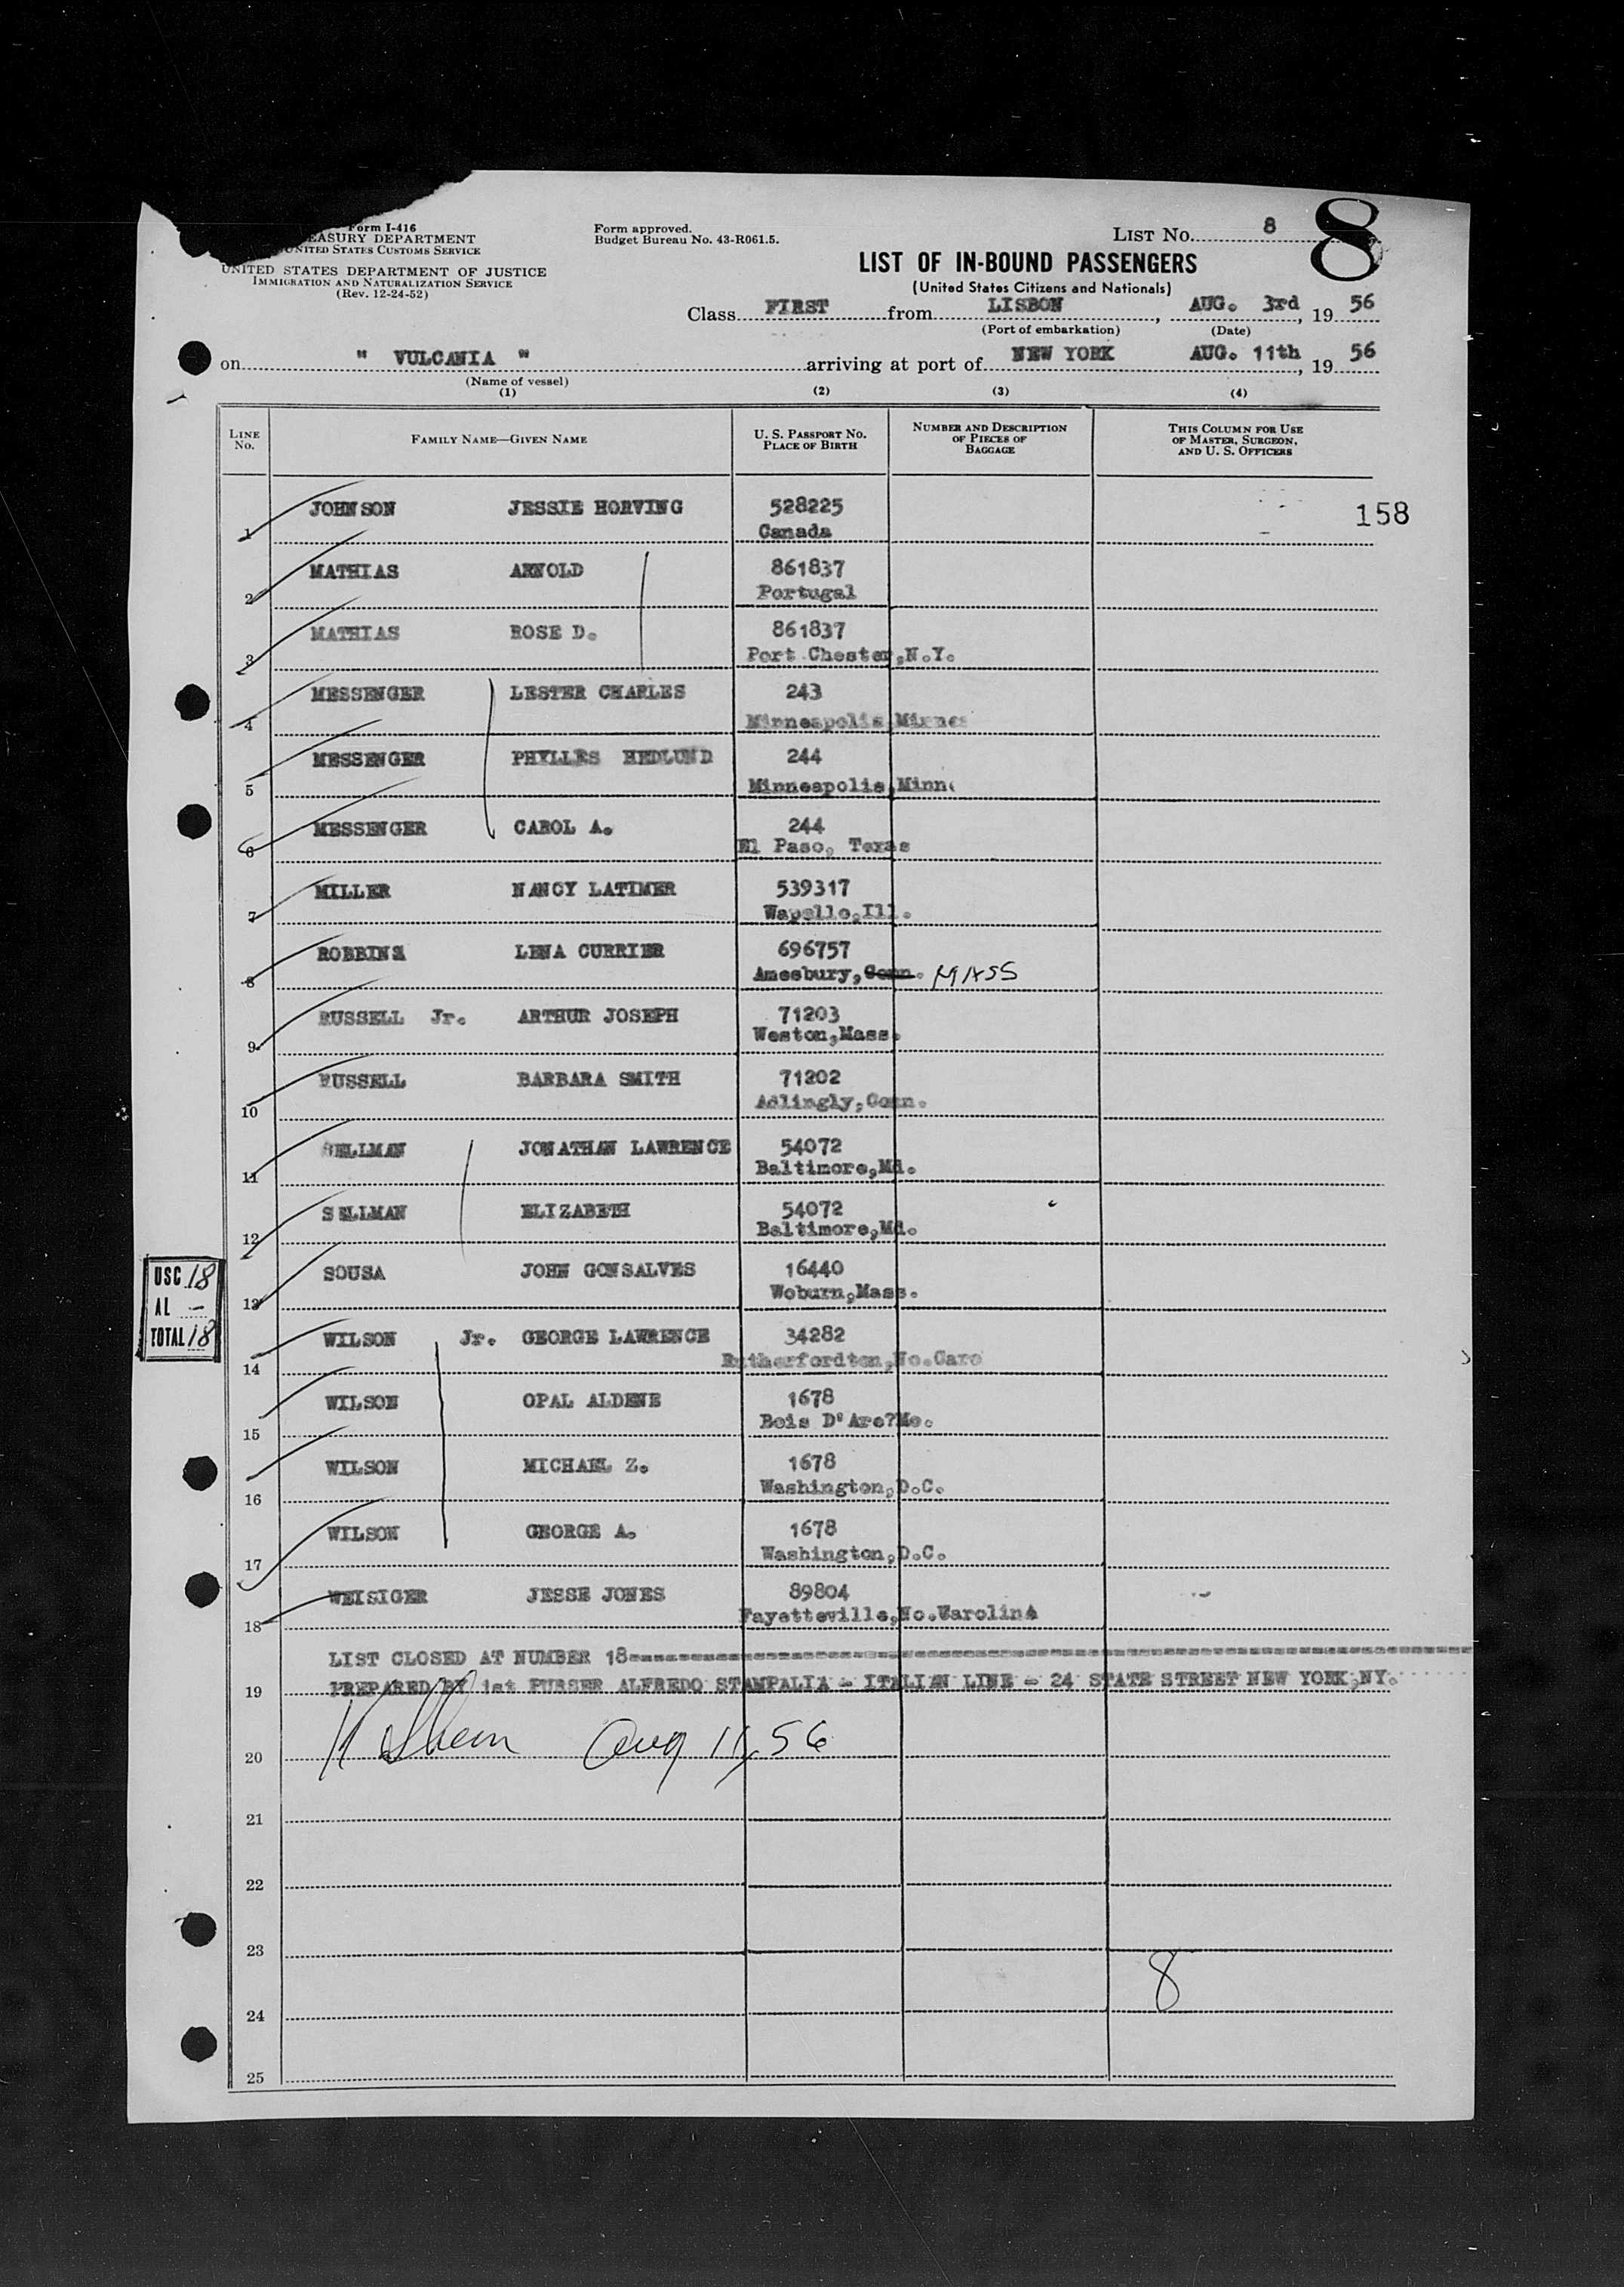 Form I-416
TREASURY DEPARTMENT
UNITED STATES CUSTOMS SERVICE
UNITED STATES DEPARTMENT OF JUSTICE
IMMIGRATION AND NATURALIZATION SERVICE
(Rev. 12-24-52)
Form approved.
Budget Bureau No. 43-R061.5.
LIST NO. 8
8
LIST OF IN-BOUND PASSENGERS
(United States Citizens and Nationals)
Class FIRST from LISBON, AUG. 3rd, 19 56
(Port of embarkation) (Date)
on " VULCANIA " arriving at port of NEW YORK AUG. 11th, 19 56
(Name of vessel)
(1) (2) (3) (4)
LINE No. FAMILY NAME—GIVEN NAME U. S. PASSPORT NO. PLACE OF BIRTH NUMBER AND DESCRIPTION OF PIECES OF BAGGAGE THIS COLUMN FOR USE OF MASTER, SURGEON, AND U. S. OFFICERS
158
1 JOHNSON JESSIE HORVING 528225
Canada
2 MATHIAS ARNOLD 861837
Portugal
3 MATHIAS ROSE D. 861837
Port Chester,N.Y.
4 MESSENGER LESTER CHARLES 243
Minneapolis,Minnes
5 MESSENGER PHYLLES HEDLUND 244
Minneapolis,Minn
6 MESSENGER CAROL A. 244
El Paso, Texas
7 MILLER NANCY LATIMER 539317
Wapello,Ill.
8 ROBBINS LENA CURRIER 696757
Amesbury,Conn. MASS
9 RUSSELL Jr. ARTHUR JOSEPH 71203
Weston,Mass.
10 RUSSELL BARBARA SMITH 71202
Adlingly,Conn.
11 SELLMAN JONATHAN LAWRENCE 54072
Baltimore,Md.
12 SELLMAN ELIZABETH 54072
Baltimore,Md.
13 SOUSA JOHN GONSALVES 16440
Woburn,Mass.
USC 18
AL -
TOTAL 18
14 WILSON Jr. GEORGE LAWRENCE 34282
Rutherfordton,No.Caro
15 WILSON OPAL ALDENE 1678
Bois D'Arc?Mo.
16 WILSON MICHAEL Z. 1678
Washington,D.C.
17 WILSON GEORGE A. 1678
Washington,D.C.
18 WEISIGER JESSE JONES 89804
Fayetteville,No.Carolina
LIST CLOSED AT NUMBER 18
19 PREPARED BY 1st PURSER ALFREDO STAMPALIA - ITALIAN LINE - 24 STATE STREET NEW YORK,NY.
20 Aug 11, 56
21
22
23
8
24
25